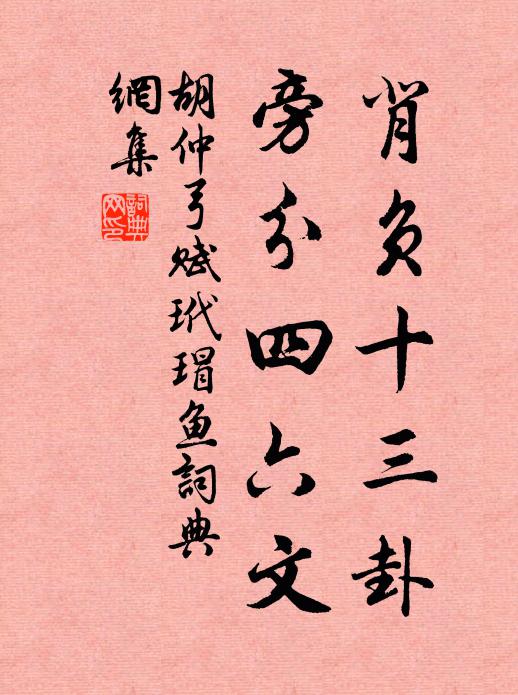 背负十三卦
旁分四六文
胡仲弓赋玳瑁鱼詞典
網集
詞典网印